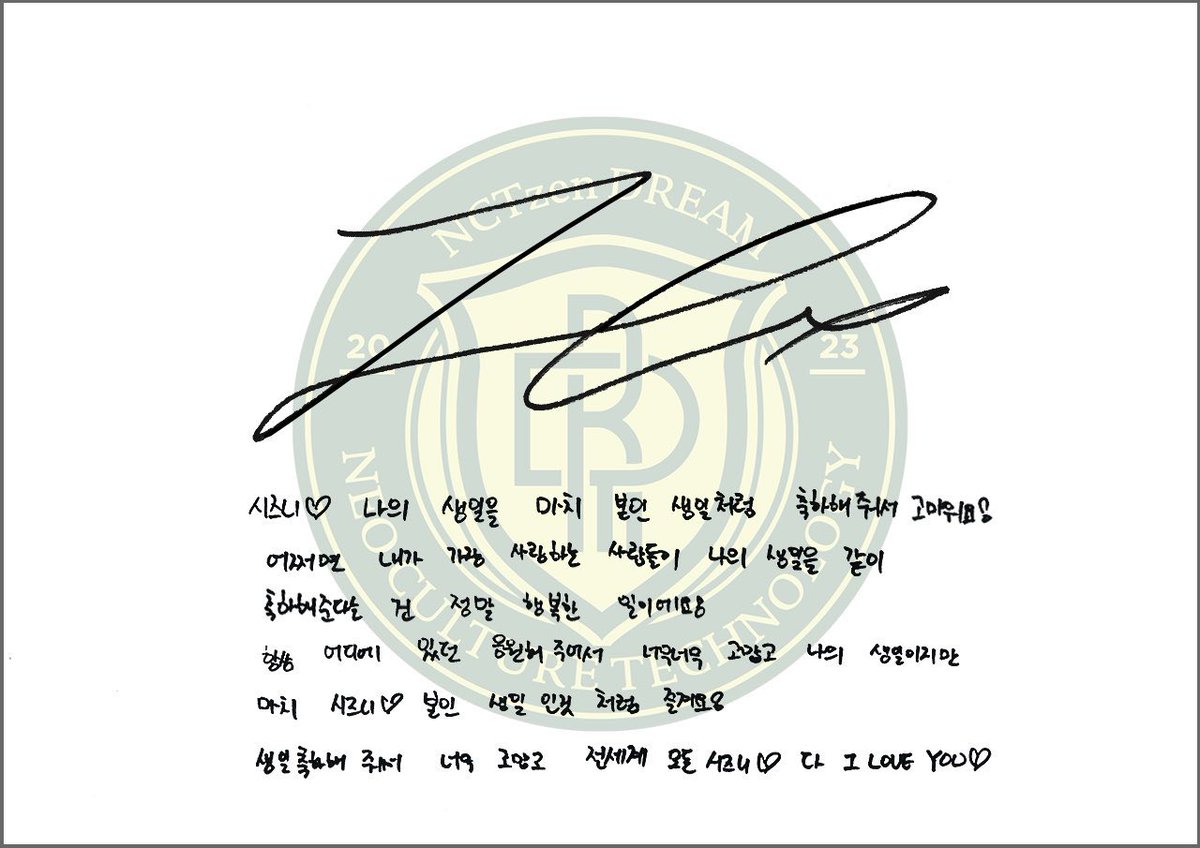 NCTzen DREAM
20 23
NEO CULTURE TECHNOLOGY
시즈니♡ 나의 생일을 마치 본인 생일처럼 축하해 줘서 고마워요
어쩌면 내가 가장 사랑하는 사람들이 나의 생일을 같이
축하해준다는 건 정말 행복한 일이에요
항상 어디에 있던 응원해 주어서 너무너무 고맙고 나의 생일이지만
마치 시즈니♡ 본인 생일 인것 처럼 즐겨요
생일 축하해 줘서 너무 고맙고 전세계 모든 시즈니♡ 다 I LOVE YOU♡